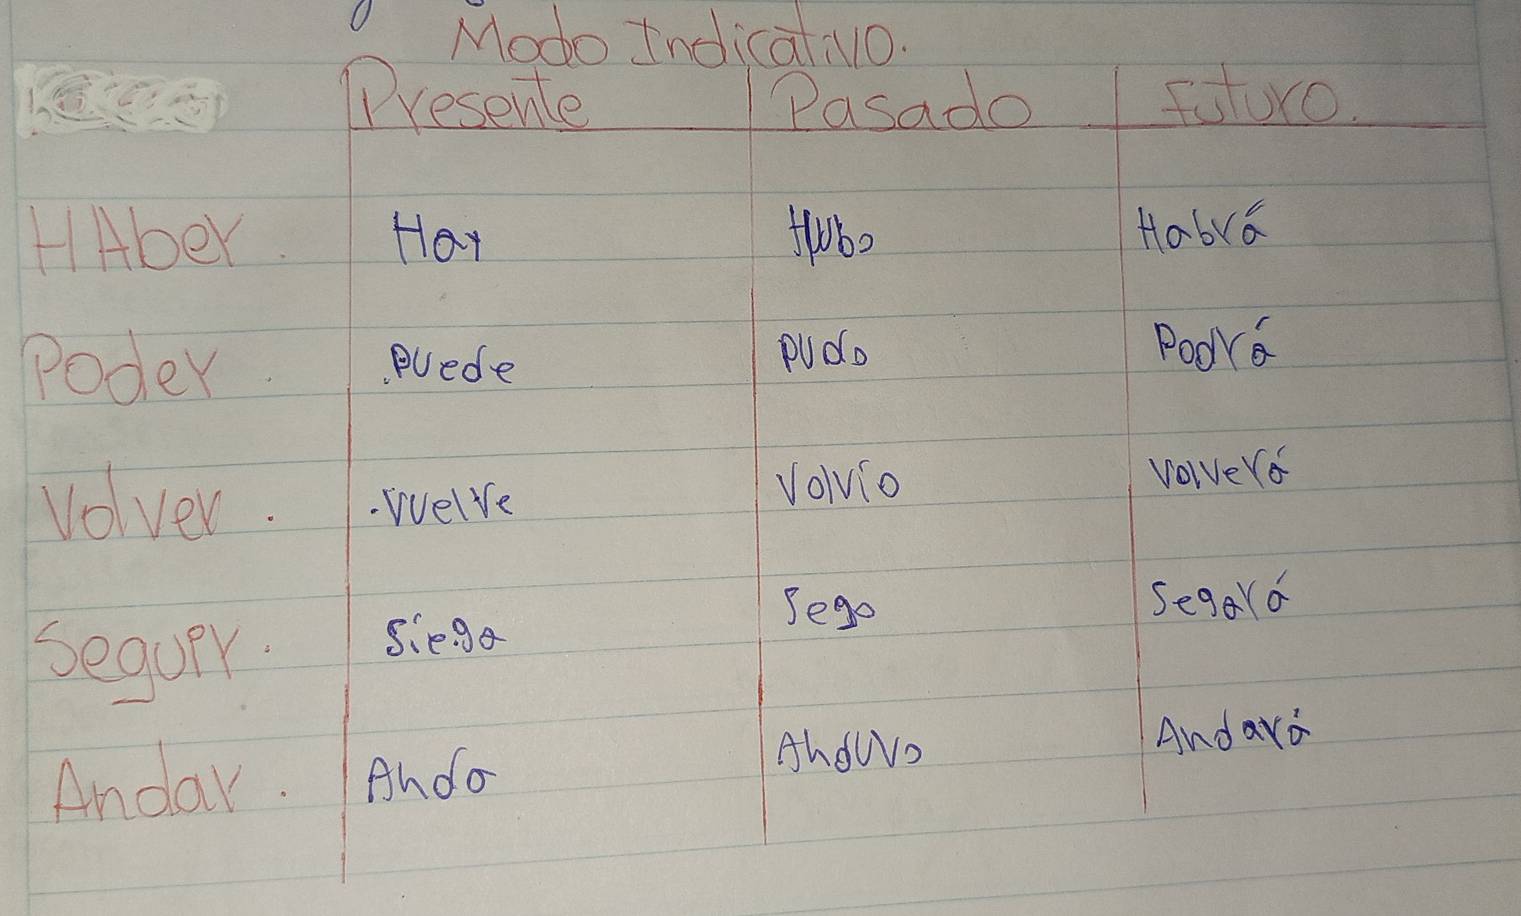 Modo Indicativo.
Presente Pasado Futuro.
HAber. Hay Hubo Habrá
Poder. .puede pudo Podrá
Volver. .vuelve Volvio volverá
Seguir. Siega Sego Segará
Andar. Anda Anduvo Andará